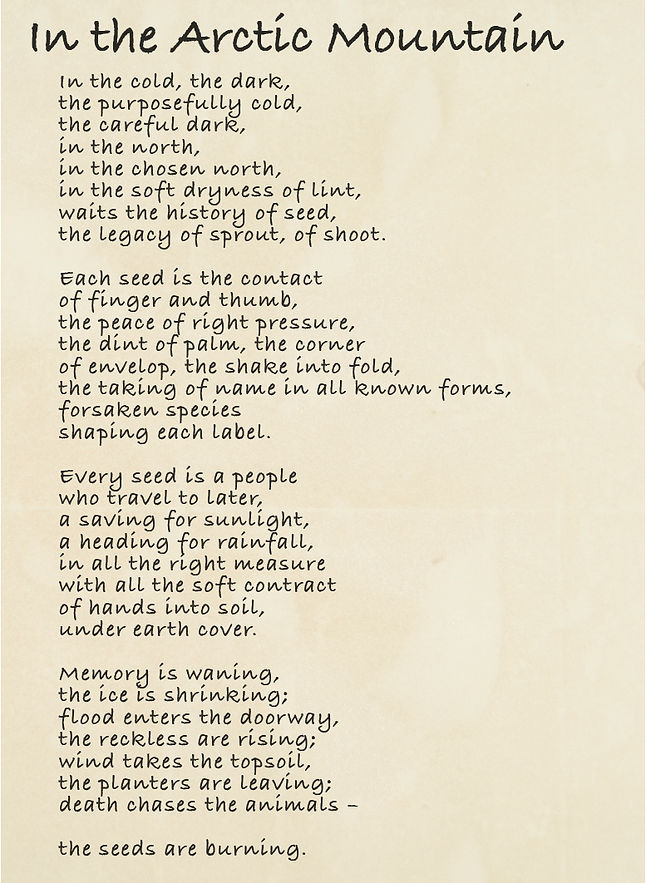 In the Arctic Mountain
In the cold, the dark,
the purposefully cold,
the careful dark,
in the north,
in the chosen north,
in the soft dryness of lint,
waits the history of seed,
the legacy of sprout, of shoot.
Each seed is the contact
of finger and thumb,
the peace of right pressure,
the dint of palm, the corner
of envelop, the shake into fold,
the taking of name in all known forms,
forsaken species
shaping each label.
Every seed is a people
who travel to later,
a saving for sunlight,
a heading for rainfall,
in all the right measure
with all the soft contract
of hands into soil,
under earth cover.
Memory is waning,
the ice is shrinking;
flood enters the doorway,
the reckless are rising;
wind takes the topsoil,
the planters are leaving;
death chases the animals –
the seeds are burning.